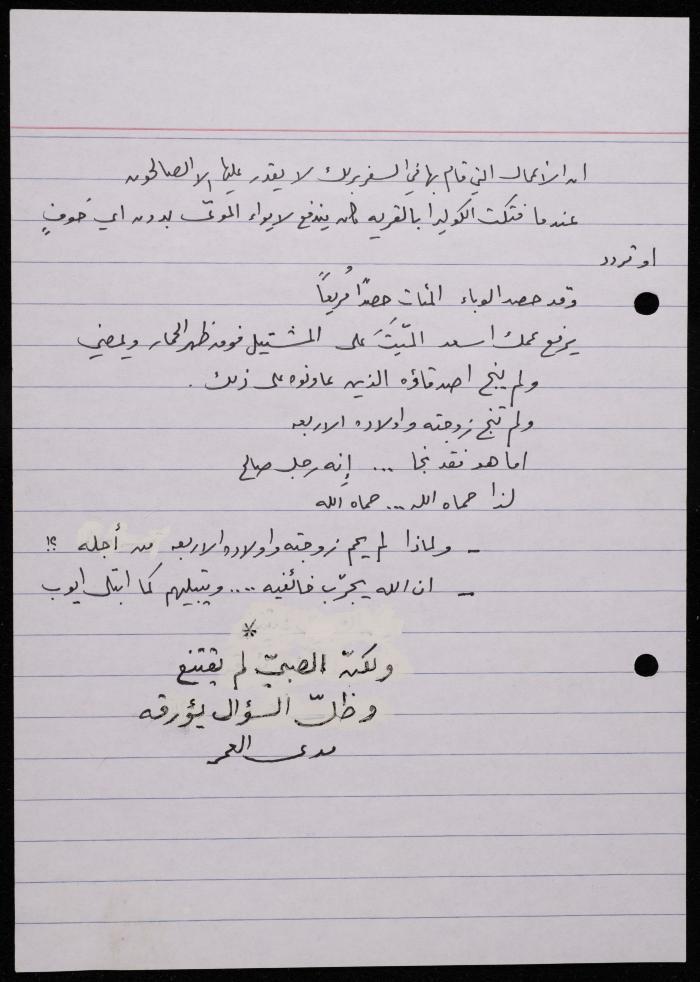 ان الاعمال التي قام بها في السفر برلك لا يقدر عليها الا الصالحون
عندما فتكت الكوليرا بالقريه كان يندفع لايواء الموتى بدون اي خوفٍ
او تردد
وقد حصد الوباء المئات حصدًا مُريعاً
يرفع عمك اسعد الميّتَ على المشتيل فوق ظهر الحمار ويمضي
ولم ينجُ اصدقاؤه الذين عاونوه على ذلك .
ولم تنج زوجته واولاده الاربعه
اما هو فقد نجا ... إنه رجل صالح
لذا حماه الله ... حماه الله
- ولماذا لم يحم زوجته واولاده الاربعه من أجله ؟!
- ان الله يجرّب خائفيه .... ويبتليهم كما ابتلى ايوب
*
ولكنّ الصبيّ لم يقتنع
وظلّ السؤال يؤرقه
مدى العمر